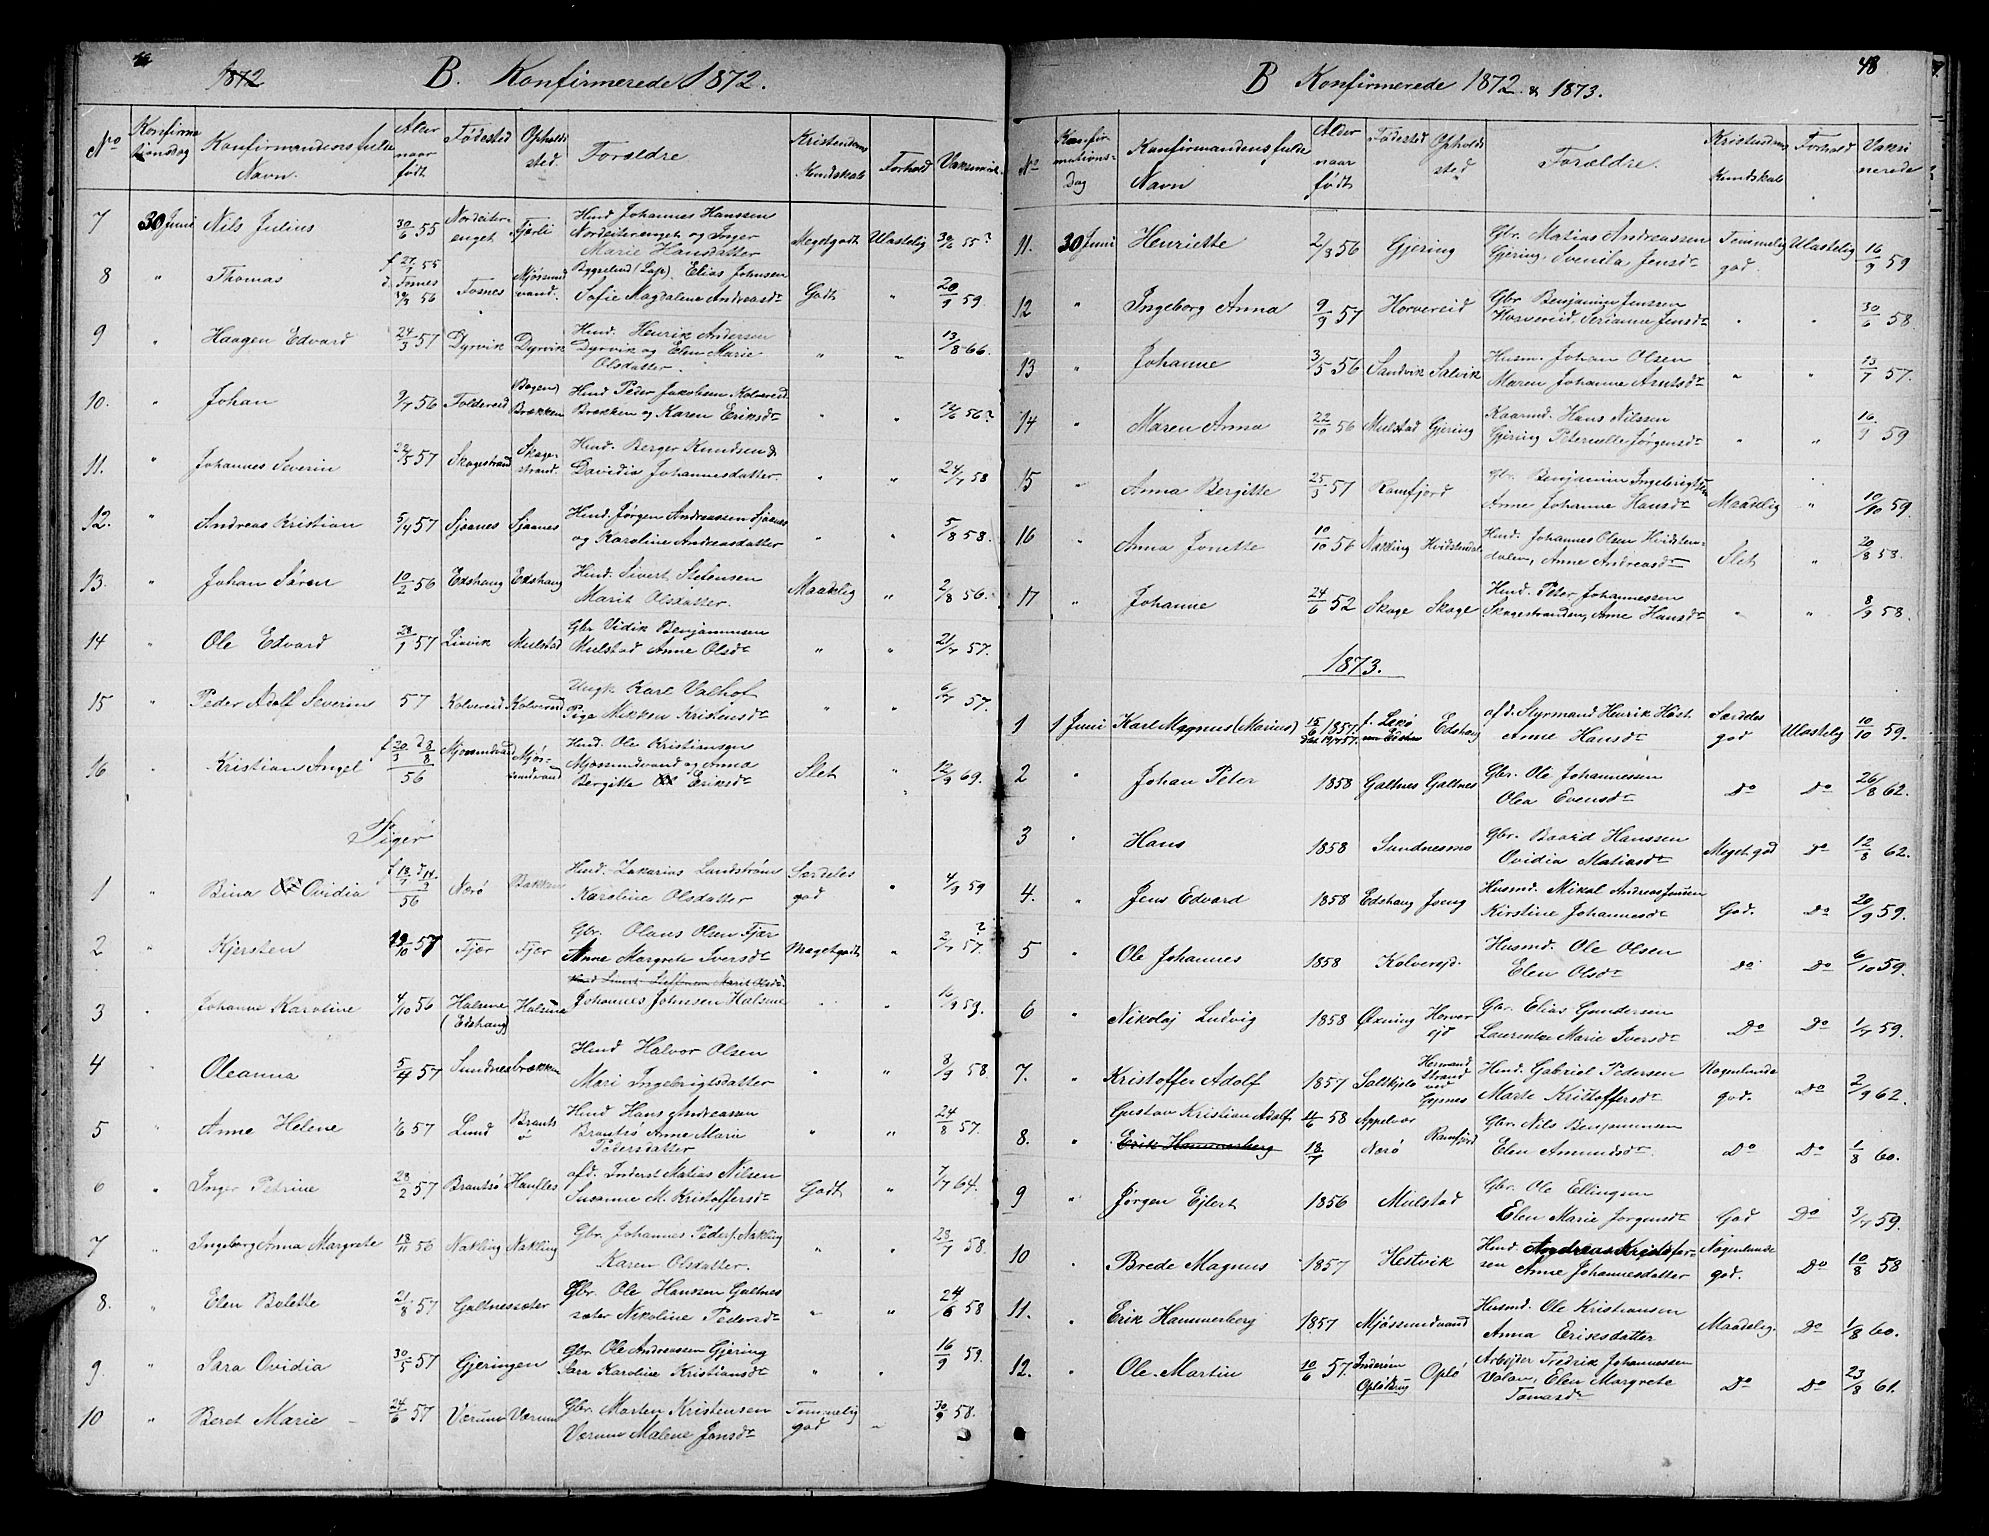 1872 B. Konfirmerede 1872.
No Konfirmationsdag Konfirmandens fulde Navn. Alder naar født Fødested Opholdssted. Forældre Kristendoms Kundskab Forhold Vaksineret
7 30 Juni Nils Julius 30/6 55 Nordeiterenget Fjærli Hmd Johannes Hanssen Nordeiterenget og Inger Marie Hansdatter Meget godt Ulastelig 30/2 55?
8 " Thomas Fosnes Mjøsundvand. (Lap). Elias Johnsen Sofie Magdalene Andreasdr Godt " 20/9 59.
9 " Haagen Edvard 24/3 57 Dyrvik Dyrvik Hmd. Henrik Andersen Dyrvik og Elen Marie Olsdatter. " " 13/8 66.
10. " Johan 9/7 56 Foldereid Bogen Brækken Hmd Peder Jakobsen Kolvereid Brækken og Karen Eriksdr " " 12/6 56?
11. " Johannes Severin 29/5 57 Skagestrand Skagestrand. Hmd. Berger Knudsen & Davidia Johannesdatter. " " 24/7 58
12. " Andreas Kristian 5/4 57 Sjaanes Sjaanes Hmd. Jørgen Andreassen Sjaanes og Karoline Andreasdatter " " 5/8 58.
13. " Johan Søren 10/2 56 Edshaug Edshaug Hmd. Sivert Stefensen Marit Olsdatter. Maadelig " 2/8 56.
14 " Ole Edvard 28/1 57 Liavik Mulstad Gbr Vidik Benjaminsen Mulstad Anne Olsdr " " 21/7 57.
15 " Peder Adolf Severin 57 Kolvereid Kolvereid Ungk Karl Valhof Pige Mikken Kristensdr " " 6/7 57.
16 " Kristian Angel f 20/3 d 8/8 56 Mjøsundvand Mjøsundvand Hmd. Ole Kristiansen Mjøsundvand og Anna Bergitte Eriksdr Slet " 12/9 69.
Piger
1 " Bina Ovidia 56 Nærø Bakken Hmd. Zakarias Lundstrøm Karoline Olsdatter Særdeles god " 4/9 59
2 " Kjersten 19/10 57 Fjær Fjær Gbr. Olaus Olsen Fjær Anne Margrete Iversdr Meget godt " 2/7 57.?
3 " Johanne Karoline 4/10 56 Halsene (Edshaug) Halsene Johannes Johnsen Halsene " " 16/9 59.
4 " Oleanna 5/4 57 Sundnes brækken Hmd Halvor Olsen Mari Ingebrigtsdatter " " 8/9 58.
5 " Anne Helene 1/6 57 Lund Brantsø Hmd Hans Andreassen Brantsø Anne Marie Petersdatter " " 24/8 57.
6 " Inger Petrine 28/2 57 Brantsø Haufles afd. Inderst Matias Nilsen Susanne M. Kristoffersdr Godt " 7/7 64.
7 " Ingeborg Anna Margrete 18/11 56 Nakling Nakling Gbr. Johannes Peders. Nakling Karen Olsdatter. " " 28/7 58.
8. " Elen Bolette 21/8 57 Galtnessæter Gbr. Ole Hanssen Galtnessæter Nikoline Pedersdr " " 24/6 58
9 " Sara Ovidia 30/5 57 Gjeringen Gbr Ole Andreassen Gjering Sara Karoline Kristiansdr " " 16/9 59.
10 " Beret Marie 24/6 57 Værum Værum Gbr. Morten Kristensen Værum Malene Jonsdr Temmelig god " 30/9 58.
B Konfirmerede 1872 & 1873. 48
No Konfirmationsdag Konfirmandens fulde Navn Alder naar født Fødested Opholdssted Forældre. Kristendoms Kundskab Forhold Vaksinerede
11. 30 Juni Henriette 2/3 56 Gjering Gbr. Matias Andreassen Gjering, Svenila Jensdr Temmelig god Ulastelig 16/9 59
12 " Ingeborg Anna 9/9 57 Horvereid Gbr Benjamin Jenssen Horvereid, Serianna Jensdr " " 30/6 58.
13 " Johanne 3/5 56 Sandvik Salvik Husm. Johan Olsen Maren Johanne Arntsdr " " 13/7 57.
14 " Maren Anna 22/10 56 Mulstad Gjering Kaarmd. Hans Nilssen Gjering Peternelle Jørgensdr " " 16/9 59
15 " Anna Bergitte 25/3 57 Ramfjord Gbr. Benjamin Ingebrigtsen Anne Johanne Hansdr Maadelig " 10/10 59.
16 " Anna Jonette 10/10 56 Nakling Hmd. Johannes Olsen Anne Andreasdr Slet " 20/8 58.
17 " Johanne 24/6 52 Skage Skage Hmd. Peter Johannessen Skagestranden, Anne Hansdr " " 8/9 58.
1873.
1 1 Juni Karl Magnus (Marius) 15/6 1857. f. Lekø Edshaug afd. Styrmand Henrik Høst. Anne Hansdr Særdes god Ulastelig 10/10 59.
2 " Johan Peter 1858 Galtnes Galtnes Gbr. Ole Johannessen Olea Evensdr Do Do 26/8 62.
3 " Hans 1858 Sundnesmo Gbr. Baard Hanssen Ovidia Matiasdr Meget god Do 12/8 62.
4. " Jens Edvard 1858 Edshaug Joeng Husmd. Mikal Andreas Jensen Kirstine Johannesdr God. Do 20/9 59.
5 " Ole Johannes 1858 Kolverejd. Husmd. Ole Olsen Elen Olsdr Do Do 6/10 59.
6 " Nikolaj Ludvig 1858 Øxning Horverejd Gbr. Elias Gundersen Laurentze Marie Iversdr Do Do 1/7 59.
7. " Kristoffer Adolf 1857 Saltkjelv Hmd. Gabriel Pedersen Marte Kristoffersdr Nogenlunde god. Do 2/9 62.
8. " Gustav Kristian Adolf Erik Hammerberg 4/6 58 18/7 Appelvær Nærø Ramfjord Gbr. Nils Benjaminsen Elen Amundsdr Do Do 1/8 60.
9 " Jørgen Ejlert 1856 Mulstad Gbr. Ole Ellingsen Elen Marie Jørgensdr God Do 3/7 59.
10 " Brede Magnus 1857 Hestvik Hmd. Andreas Kristoffersen Anne Johannesdatter Nogenlunde god. Do 10/8 58
11. " Erik Hammerberg 1857 Mjøssundvand Husmd. Ole Kristiansen Anna Eriksdatter Maadelig. Do 1/8 60.
12. " Ole Martin 10/6 57. Inderøen Opløkrug Opløe Arbejder Fredrik Johannessen Valøen, Elen Margrete Tomasdr Do Do 23/8 61.